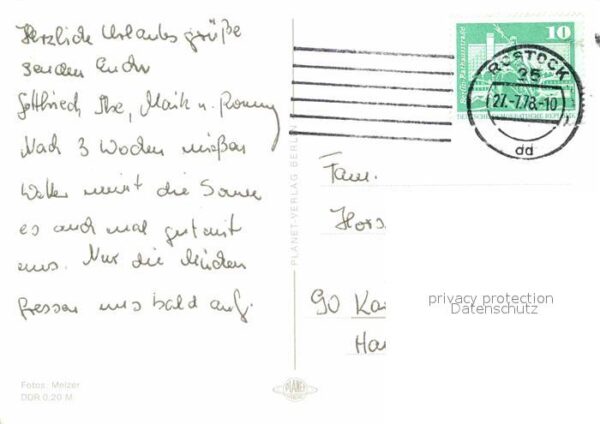 Herzliche Urlaubsgrüße
senden Euch
Gottfried Ilse, Maik u. Ronny
Nach 3 Wochen mießen
Wetter meint die Sonne
es auch mal gut mit
uns. Nur die Mücken
fressen uns bald auf.
Fotos: Melzer
DDR 0,20 M
PLANET-VERLAG BERLIN
PLANET
10
Berlin, Rathausstraße
DEUTSCHE DEMOKRATISCHE REPUBLIK
ROSTOCK
25
27.-7.78.-10
dd
Fam.
Hors
90 Ka
Ha
privacy protection
Datenschutz